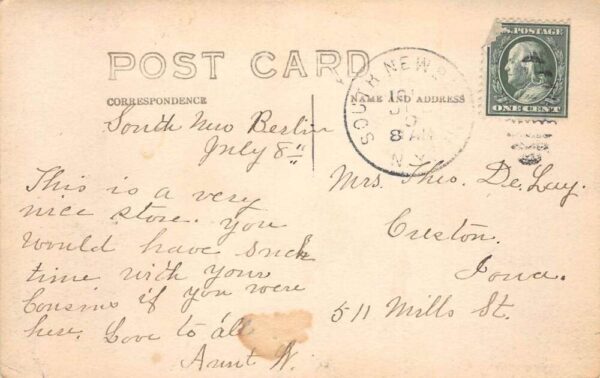 POST CARD
CORRESPONDENCE
NAME AND ADDRESS
U.S. POSTAGE
ONE CENT
SOUTH NEW
8 AM
N.Y.
South New Berlin
July 8"
This is a very
nice store. you
would have such
time with your
Cousins if you were
here. Love to all
Aunt W.
Mrs. Theo. De Lay.
Creston.
Iowa.
511 Mills St.